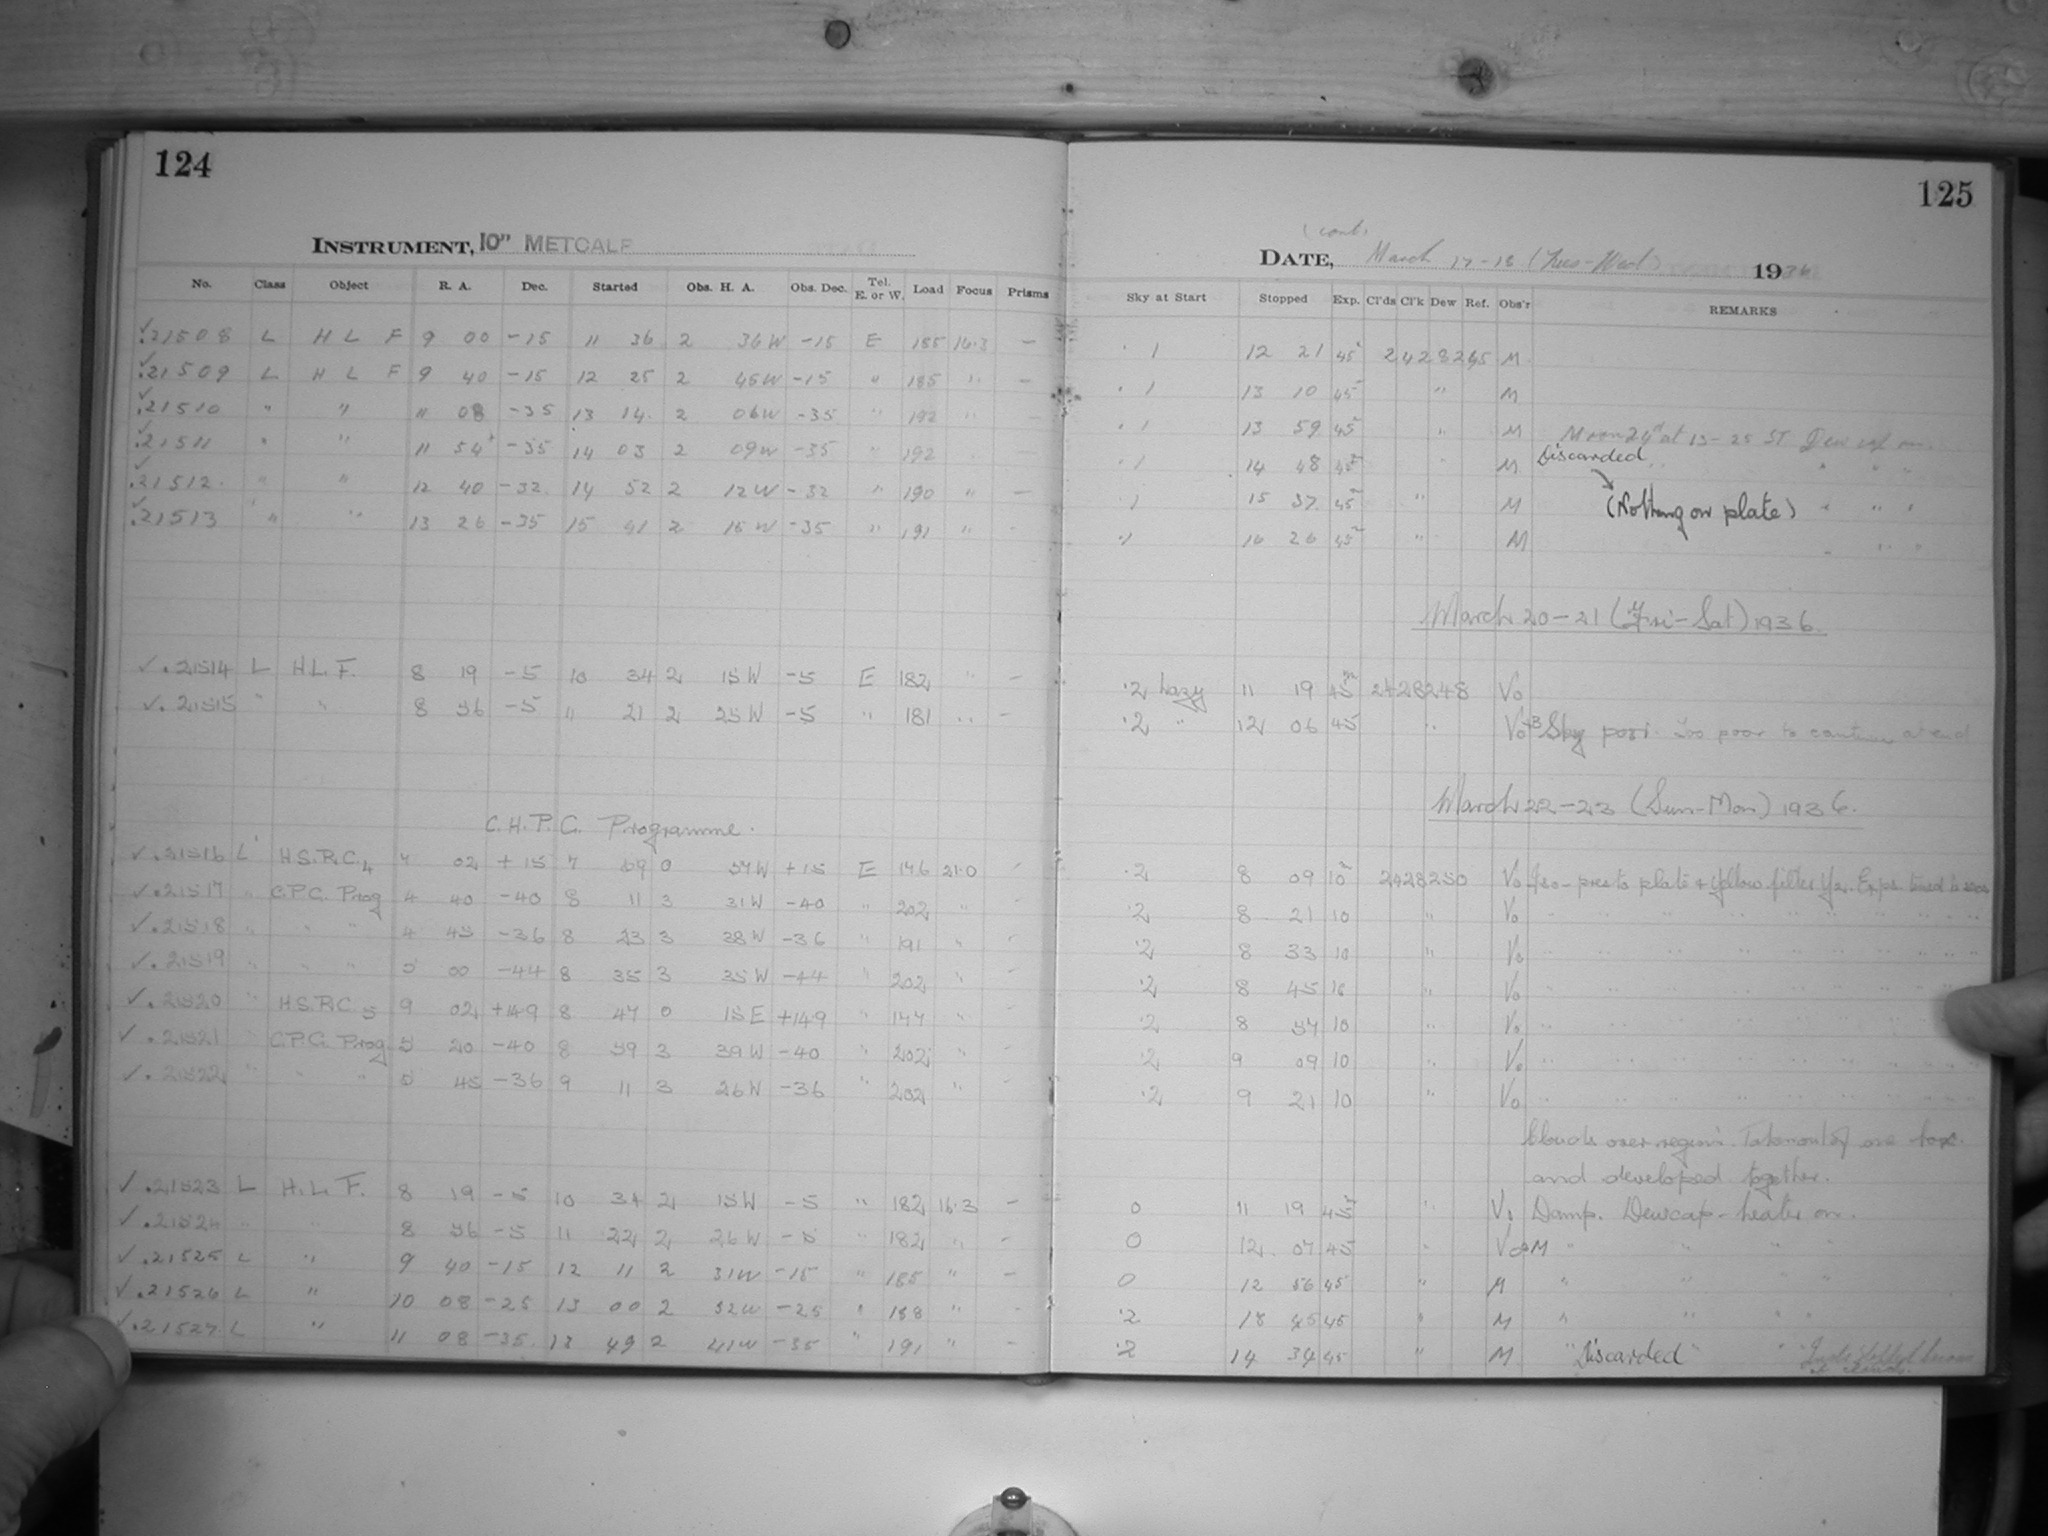 124
INSTRUMENT, 10" METCALF
No. Class Object R. A. Dec. Started Obs. H. A. Obs. Dec. Tel. E. or W. Load Focus Prisms
✓.21508 L H L F 9 00 -15 11 36 2 36W -15 E 185 16.3 -
✓.21509 L H L F 9 40 -15 12 25 2 45W -15 " 185 " -
✓.21510 " " " 08 -35 13 14 2 06W -35 " 192 "
✓.21511 " " 11 54 -35 14 03 2 09W -35 " 192
✓.21512 " " 12 40 -32 14 52 2 12W -32 " 190 " -
✓.21513 " " 13 26 -35 15 41 2 15W -35 " 191 " -
✓.21514 L H.L.F. 8 19 -5 10 34 2 15W -5 E 182 " -
✓.21515 " " 8 56 -5 11 21 2 25W -5 " 181 " -
C.H.P.C. Programme.
✓.21516 L H.S.P.C.4 7 02 +15 7 59 0 57W +15 E 146 21.0 -
✓.21517 " C.P.C. Prog 4 40 -40 8 11 3 31W -40 " 202 " -
✓.21518 " " " 4 45 -36 8 23 3 38W -36 " 191 " -
✓.21519 " " " 5 00 -44 8 35 3 35W -44 " 202 " -
✓.21520 " H.S.P.C.5 9 02 +14.9 8 47 0 15E +14.9 " 147 " -
✓.21521 C.P.C. Prog 5 20 -40 8 59 3 39W -40 " 202 " -
✓.21522 " " " 5 45 -36 9 11 3 26W -36 " 202 " -
✓.21523 L H.L.F. 8 19 -5 10 34 2 15W -5 " 182 16.3 -
✓.21524 " " 8 56 -5 11 22 2 26W -5 " 182 " -
✓.21525 L " 9 40 -15 12 11 2 31W -15 " 185 " -
✓.21526 L " 10 08 -25 13 00 2 52W -25 " 188 " -
✓.21527 L " 11 08 -35 13 49 2 41W -35 " 191 " -
125
(cont)
DATE, March 17-18 (Tues-Wed) 1936
Sky at Start Stopped Exp. Cl'ds Cl'k Dew Ref. Obs'r REMARKS
.1 12 21 45 2428245 M
.1 13 10 45 " M
.1 13 59 45 " M Moon at 13-25 ST Dew cap on.
.1 14 48 45 " M Discarded " " "
.1 15 37 45 " M (Nothing on plate) " " "
.1 16 26 45 " M " " "
March 20-21 (Fri-Sat) 1936.
.2 hazy 11 19 45 2428248 Vo
.2 " 12 06 45 " Vo+B Sky poor. Too poor to continue at end
March 22-23 (Sun-Mon) 1936.
.2 8 09 10 2428250 Vo Iso-presto plate & Yellow filter
.2 8 21 10 " Vo " " " "
.2 8 33 10 " Vo " " " "
.2 8 45 10 " Vo " " " "
.2 8 57 10 " Vo " " " "
.2 9 09 10 " Vo " " " "
.2 9 21 10 " Vo " " " "
Clouds over region. Taken out of one box
and developed together.
0 11 19 45 " Vo Damp. Dewcap-heater on.
0 12 07 45 " Vo&M " " " "
0 12 56 45 " M " " " "
.2 13 45 45 " M " " " "
.2 14 34 45 " M " Discarded "